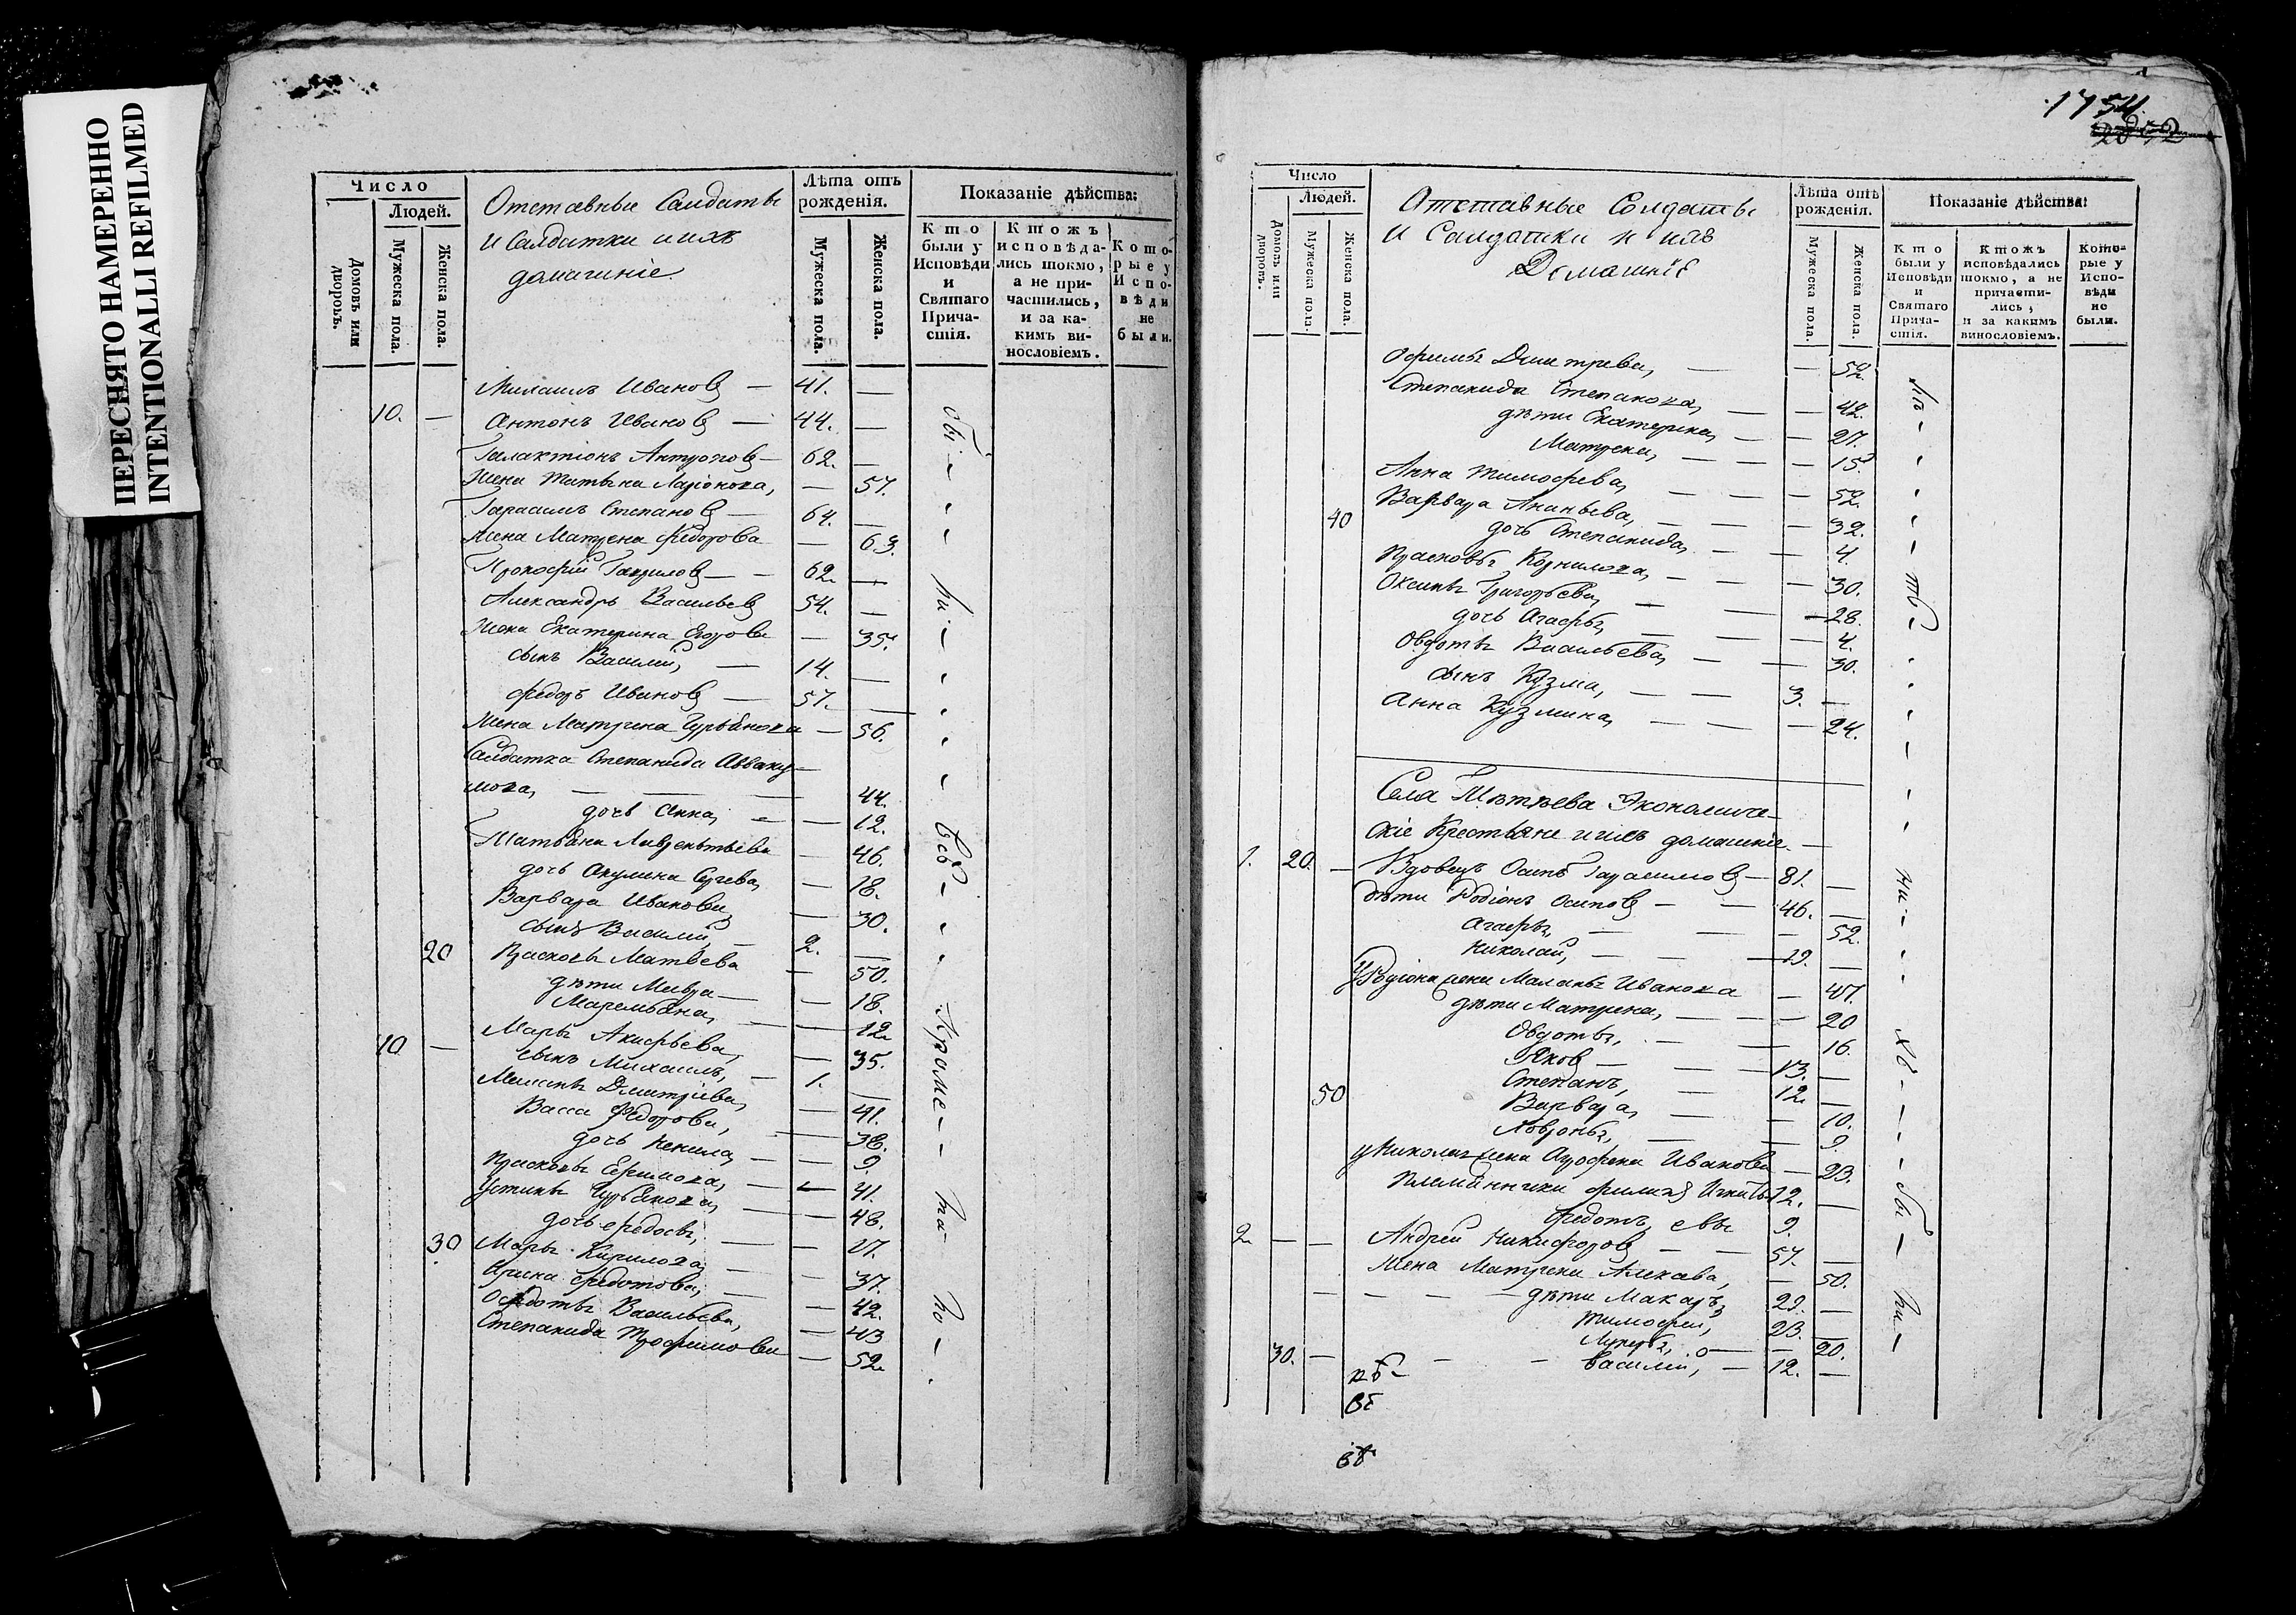 ПЕРЕСНЯТО НАМЕРЕННО
INTENTIONALLI REFILMED
Число
Людей.
Домовъ или дворовъ.
Мужеска пола.
Женска пола.
Отставные Салдаты
и Салдатки и ихъ
домашніе
Лѣта отъ рожденія.
Мужеска пола.
Женска пола.
Показаніе дѣйства:
Кто были у Исповѣди и Святаго Причастія.
Ктожъ исповѣдались токмо, а не причастились, и за какимъ винословіемъ.
Которые у Исповѣди не были.
Михаилъ Ивановъ — 41. —
10. — Антонъ Ивановъ — 44. —
Галактіонъ Антроповъ — 62. —
Жена Татьяна Ларіонова, — 57.
Гарасимъ Степановъ — 64. —
Жена Матрена Федорова — 63.
Прокофій Гаврилов — 62. —
Александръ Васильевъ 54. —
Жена Екатерина Егорова — 35.
сынъ Василій, — 14. —
Федоръ Ивановъ — 57. —
Жена Матрена Гурьянова — 56.
Салдатка Степанида Авваку-
мова, — — — 44.
дочь Анна, — — 12.
Татьяна Лаврентьева — 46.
дочь Акулина — 18.
Варвара Иванова — 30.
сынъ Василій — 2. —
20 Прасковья Матвѣева — 50.
дѣти Мавра — — 18.
Маремьяна, — — 12.
10 — Марья Акифьева, — 35.
сынъ Михаилъ, — 1. —
Меланья Дмитріева, — 41.
Васса Федорова, — 38.
дочь Ненила, — — 9.
Прасковья Ефимова, — — 41.
Устинья Гурьянова, — — 48.
дочь Федосья, — — 17.
30 Марья Кирилова, — — 37.
Ирина Федотова, — — 42.
Овдотья Васильева, — 43
Степанида Трофимова — 52.
1754.
Число
Людей.
Домовъ или дворовъ.
Мужеска пола.
Женска пола.
Отставные Солдаты
и Салдатки и ихъ
Домашніе
Лѣта отъ рожденія.
Мужеска пола.
Женска пола.
Показаніе дѣйства:
Кто были у Исповѣди и Святаго Причастія.
Ктожъ исповѣдались токмо, а не причастились, и за какимъ винословіемъ.
Которые у Исповѣди не были.
Офимья Дмитрева, — — 52.
Степанида Степанова, — — 42.
дѣти Екатерина, — — 27.
Матрена, — — — 15.
Анна Тимофева, — — — 52.
40 Варвара Ананьева, — — — 32.
дочь Степанида, — — 4.
Прасковья Корнилова, — — — 30.
Оксинья Григорьева, — — 28.
дочь Агафья, — — — 4.
Овдотья Васильева, — — 30.
сынъ Кузма, — — 3. —
Анна Кузмина, — — — 24.
Села Экономиче-
скіе Крестьяне и ихъ домашніе. —
1. 20. — Вдовецъ Осипъ Гарасимовъ — 81. —
дѣти Родіонъ Осиповъ — — 46. —
Агафья, — — — 52.
Николай, — — — 19. —
у Родіона жена Маланья Иванова — 47.
дѣти Матрена, — — — 20
Овдотья, — — 16.
Яков — — — 13. —
Степанъ, — — 12. —
50 Варвара, — — — 10.
— — 9.
у Николая жена Иванова — 23.
племянники Филипъ Игнать- 12. —
Федотъ, евы 9.
2 — — Андрей Никифоровъ — — 57. —
Жена Матрена — 50.
— — — — дѣти Макаръ, 29. —
Тимофей, 23. —
Лукерья, — — 20.
30. — Василій, — 12. —